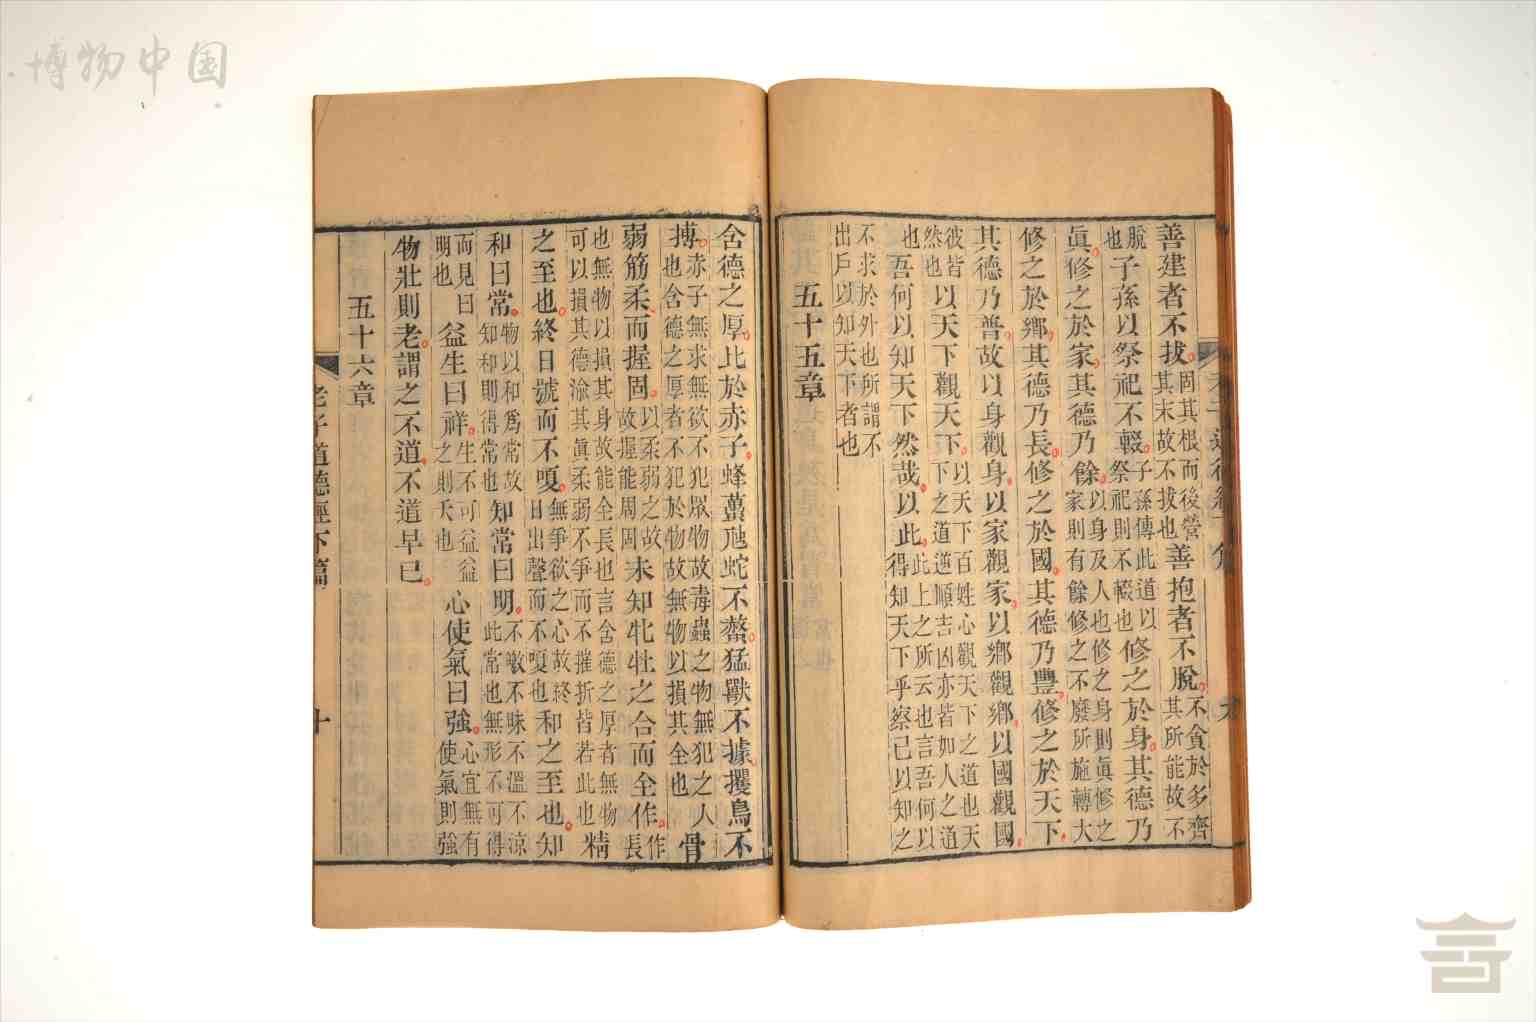 善建者不拔固其根而後營其末故不拔也善抱者不脫不貪於多齊其所能故不
脫也子孫以祭祀不輟子孫傳此道以祭祀則不輟也修之於身其德乃
眞修之於家其德乃餘以身及人也修之身則眞修之家則有餘修之不廢所施轉大
修之於鄉其德乃長修之於國其德乃豐修之於天下
其德乃普故以身觀身以家觀家以鄉觀鄉以國觀國
彼皆然也以天下觀天下以天下百姓心觀天下之道也天下之道逆順吉凶亦皆如人之道
也吾何以知天下然哉以此此上之所云也言吾何以得知天下乎察己以知之
不求於外也所謂不出戶以知天下者也
五十五章
含德之厚比於赤子蜂蠆虺蛇不螫猛獸不據攫鳥不
搏赤子無求無欲不犯眾物故毒蟲之物無犯之人也含德之厚者不犯於物故無物以損其全也骨
弱筋柔而握固以柔弱之故故握能周固未知牝牡之合而全作作長
也無物以損其身故能全長也言含德之厚者無物可以損其德渝其眞柔弱不爭而不摧折皆若此也精
之至也終日號而不嗄無爭欲之心故終日出聲而不嗄也和之至也知
和曰常物以和爲常故知和則得常也知常曰明不皦不昧不溫不涼此常也無形不可得
而見曰明也益生曰祥生不可益益之則夭也心使氣曰強心宜無有使氣則強
物壯則老謂之不道不道早已
五十六章
老子道德經下篇
十
博物中国